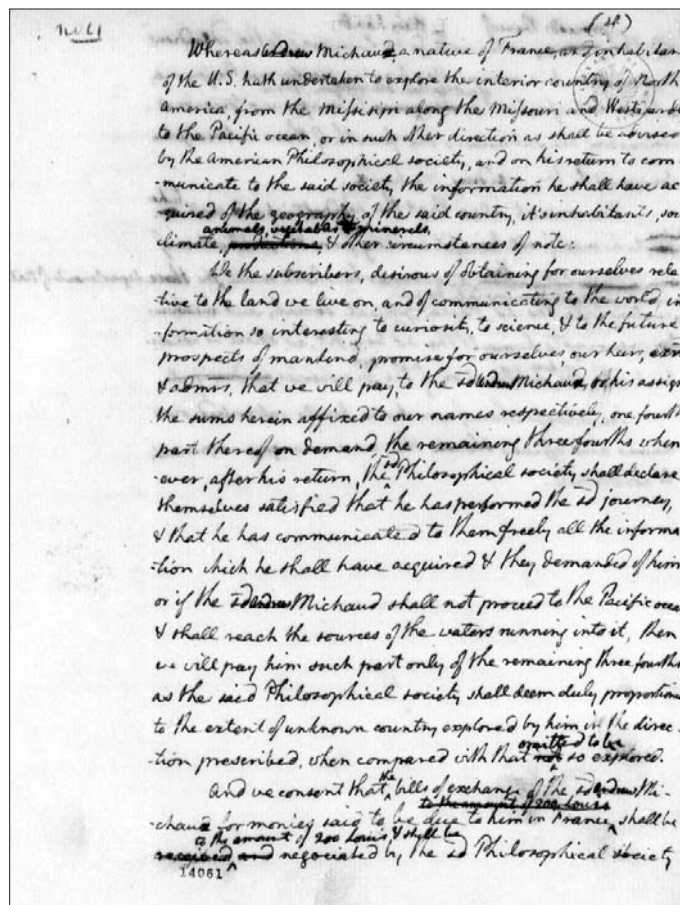 (48)
Whereas Andrew Michaud, a native of France, and inhabitan
of the U.S. hath undertaken to explore the interior country of North
america, from the Missisipi along the Missouri and Westwardl
to the Pacific ocean, or in such other direction as shall be advised
by the American Philosophical society, and on his return to com-
-municate to the said society the information he shall have ac
quired of the geography of the said country, it's inhabitants, soi
animals, vegetables & minerals,
climate, & other circumstances of note:
We the subscribers, desirous of obtaining for ourselves rela
-tive to the land we live on, and of communicating to the world, in
-formation so interesting to curiosity, to science, & to the future
prospects of mankind, promise for ourselves our heirs, exrs
& admrs, that we will pay, to the sd Andrew Michaud, or his assign
the sums herein affixed to our names respectively, one fourth
part thereof on demand, the remaining three fourths when
-ever, after his return, the sd Philosophical society shall declare
themselves satisfied that he has performed the sd journey,
& that he has communicated to them freely all the informa
-tion which he shall have acquired & they demanded of him
or if the sd Andrew Michaud shall not proceed to the Pacific ocea
& shall reach the sources of the waters running into it, then
we will pay him such part only of the remaining three fourths
as the said Philosophical society shall deem duly proportione
to the extent of unknown country explored by him in the direc-
omitted to be
-tion prescribed, when compared with that not so explored.
And we consent that the bills of exchange of the sd Andrew Mi-
to the amount of 200 Louis
-chaud for monies said to be due to him in France, shall be
to the amount of 200 Louis, & shall be
received, and negociated by the sd Philosophical society
14061